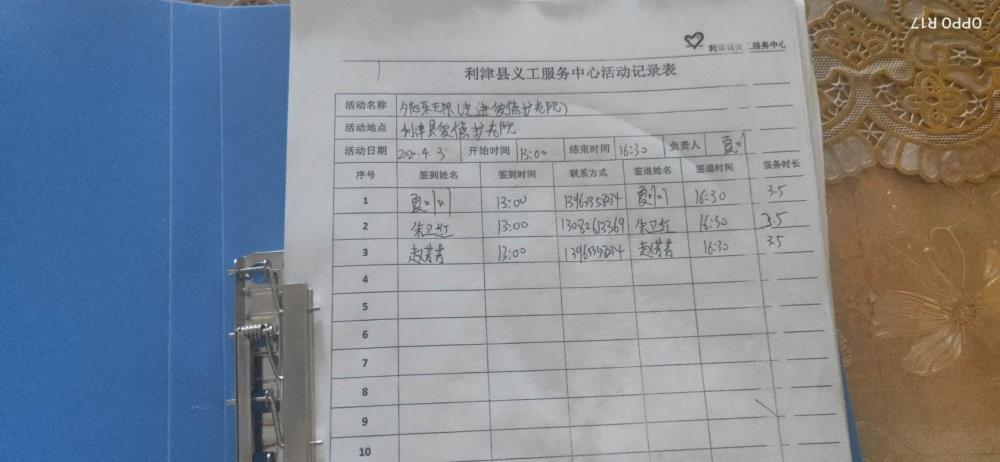 OPPO R17
利津县义工服务中心
利津县义工服务中心活动记录表
活动名称 夕阳乐无限(走进爱德护老院)
活动地点 利津县爱德护老院
活动日期 2020.4.3 开始时间 13:00 结束时间 16:30 负责人 夏
序号 签到姓名 签到时间 联系方式 签退姓名 签退时间 服务时长
1 夏 13:00 夏 16:30 3.5
2 朱卫红 13:00 朱卫红 16:30 3.5
3 赵芳芳 13:00 赵芳芳 16:30 3.5
4
5
6
7
8
9
10